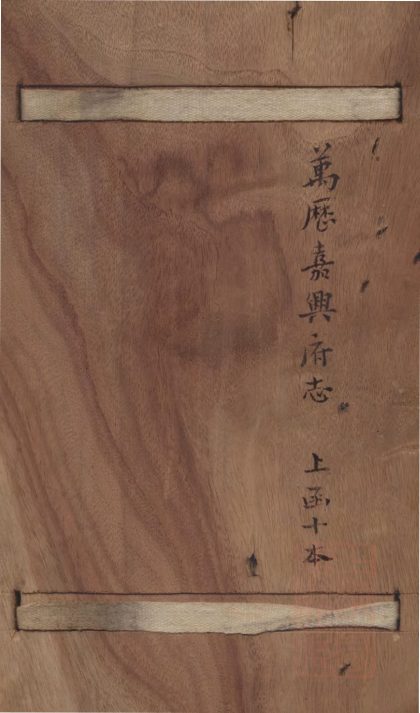 萬歷嘉興府志 上函十本